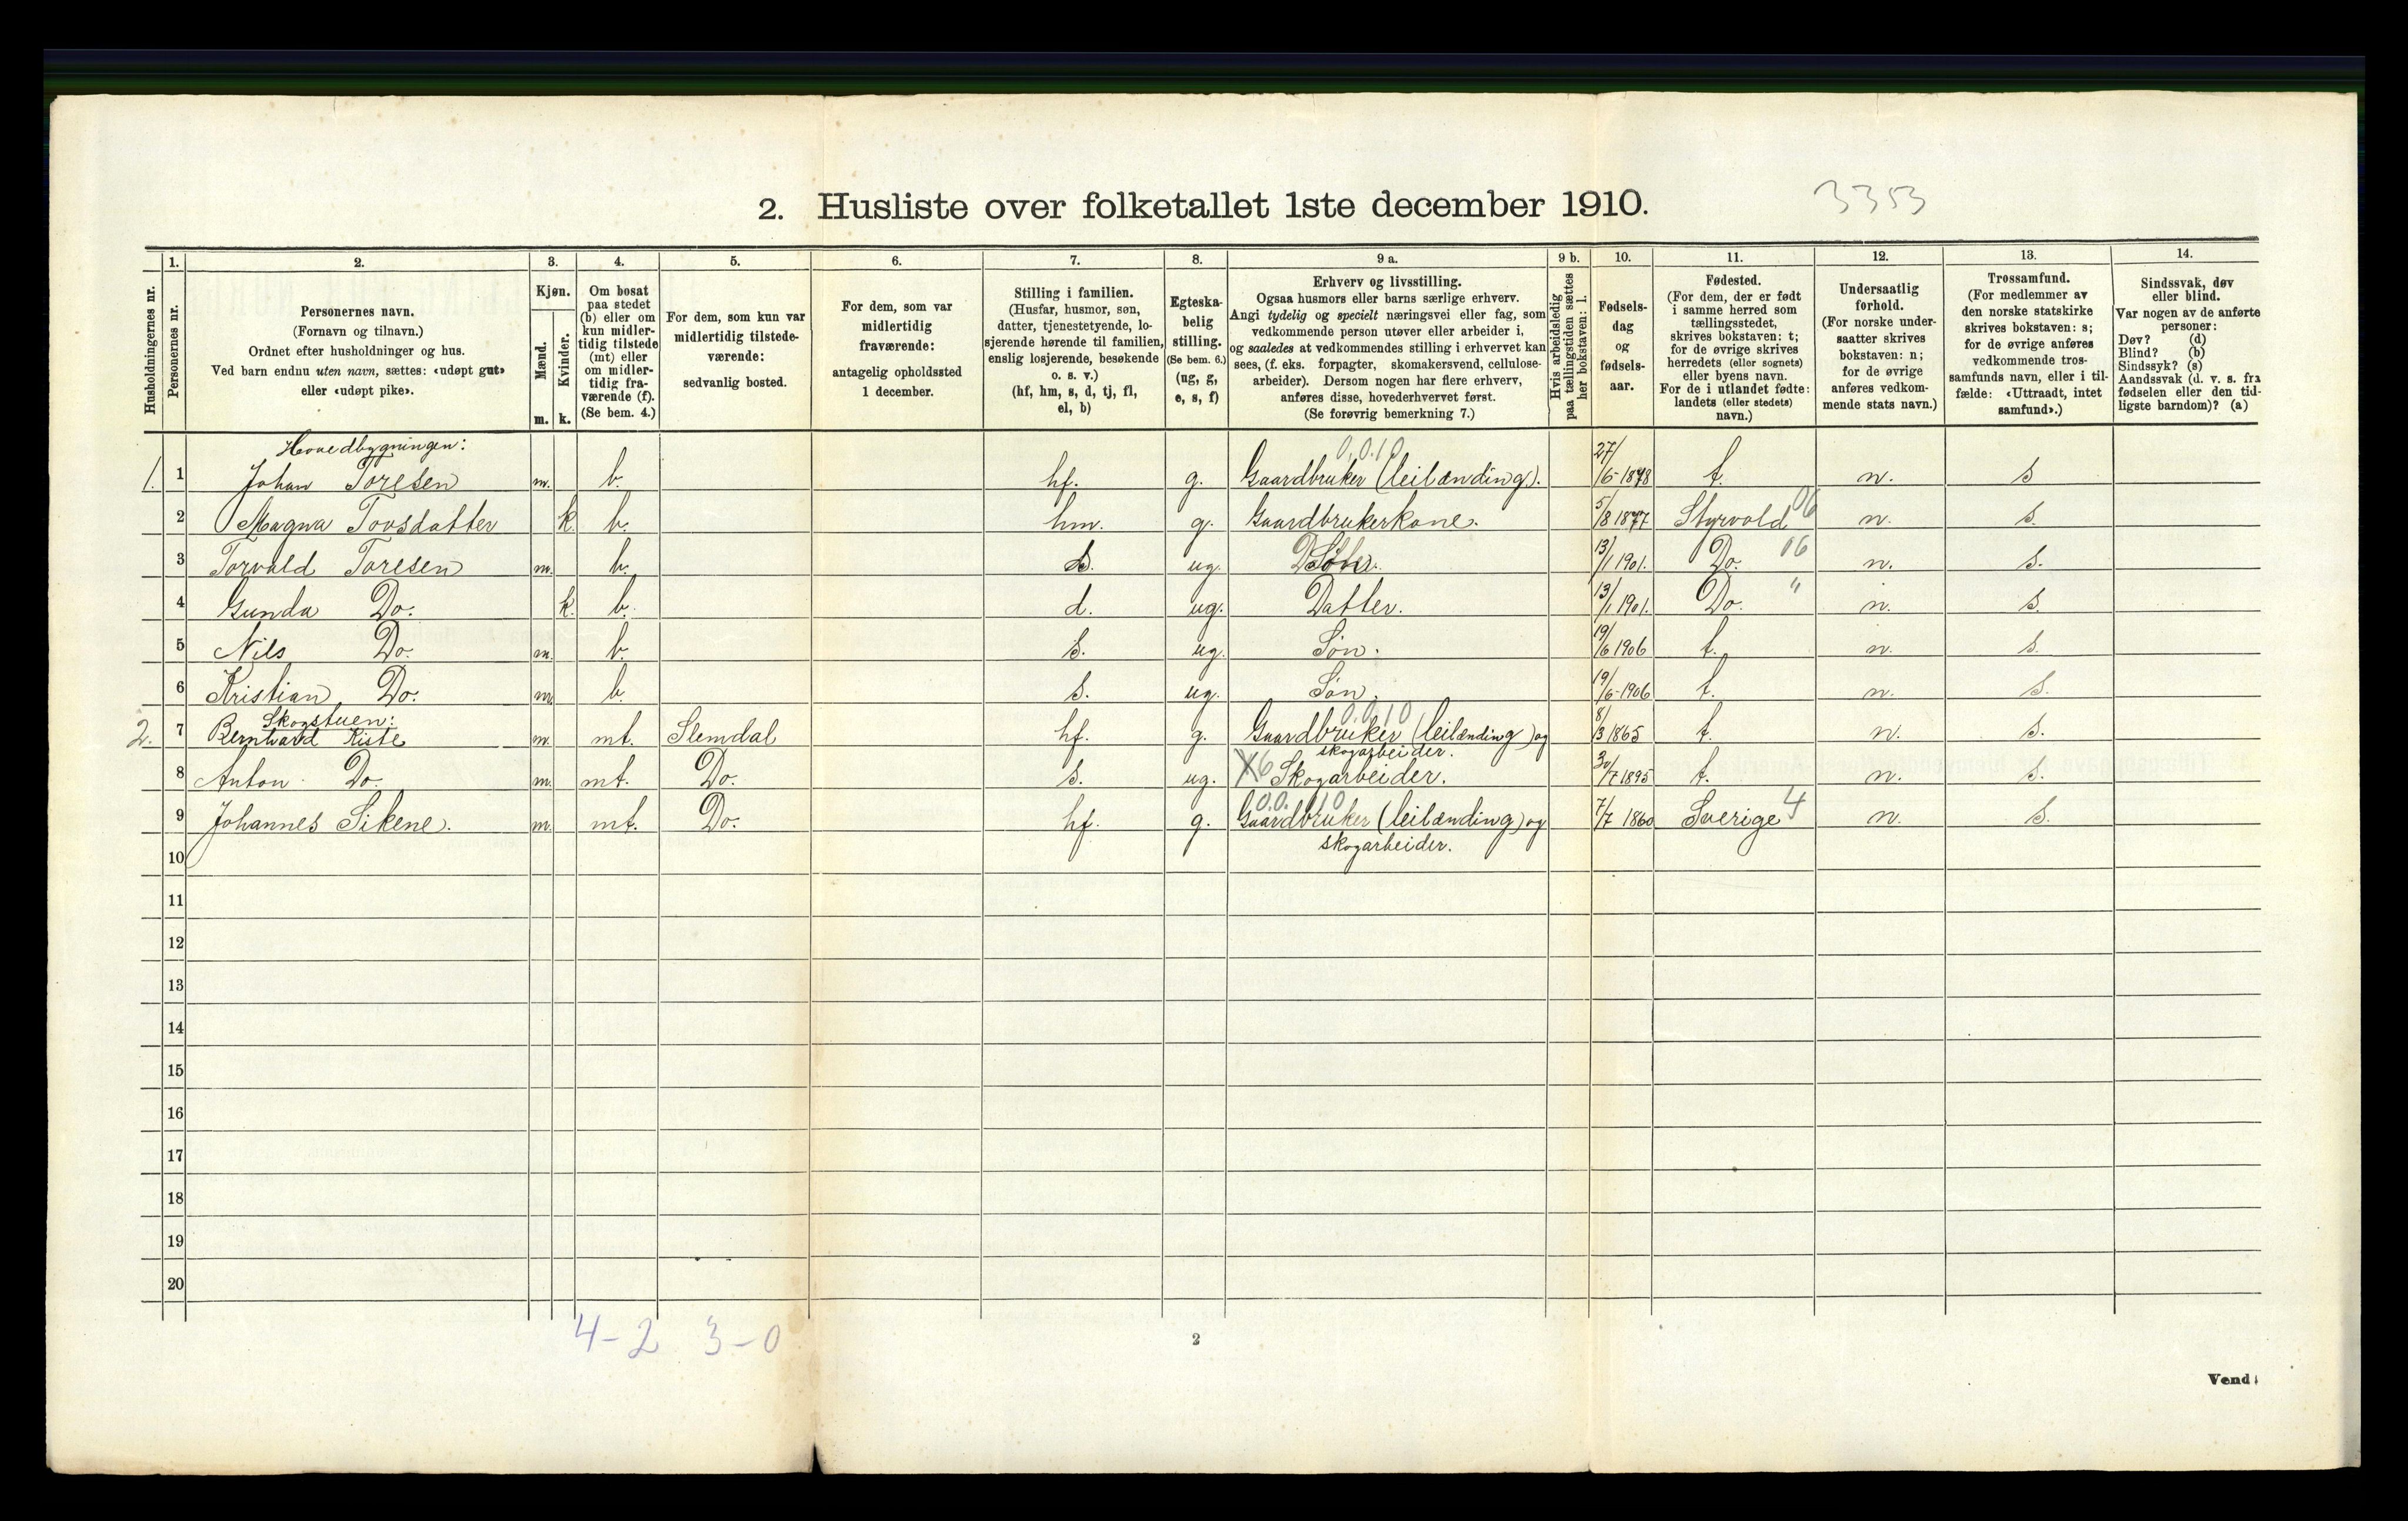 2. Husliste over folketallet 1ste december 1910.
3353
Husholdningernes nr.
1.
Personernes nr.
2.
Personernes navn.
(Fornavn og tilnavn.)
Ordnet efter husholdninger og hus.
Ved barn endnu uten navn, sættes: «udøpt gut»
eller «udøpt pike».
3.
Kjøn.
Mænd.
m.
Kvinder.
k.
4.
Om bosat
paa stedet
(b) eller om
kun midler-
tidig tilstede
(mt) eller
om midler-
tidig fra-
værende (f).
(Se bem. 4.)
5.
For dem, som kun var
midlertidig tilstede-
værende:
sedvanlig bosted.
6.
For dem, som var
midlertidig
fraværende:
antagelig opholdssted
1 december.
7.
Stilling i familien.
(Husfar, husmor, søn,
datter, tjenestetyende, lo-
sjerende hørende til familien,
enslig losjerende, besøkende
o. s. v.)
(hf, hm, s, d, tj, fl,
el, b)
8.
Egteska-
belig
stilling.
(Se bem. 6.)
(ug, g,
e, s, f)
9 a.
Erhverv og livsstilling.
Ogsaa husmors eller barns særlige erhverv.
Angi tydelig og specielt næringsvei eller fag, som
vedkommende person utøver eller arbeider i,
og saaledes at vedkommendes stilling i erhvervet kan
sees, (f. eks. forpagter, skomakersvend, cellulose-
arbeider). Dersom nogen har flere erhverv,
anføres disse, hovederhvervet først.
(Se forøvrig bemerkning 7.)
9 b.
Hvis arbeidsledig
paa tællingstiden sættes
her bokstaven: l.
10.
Fødsels-
dag
og
fødsels-
aar.
11.
Fødested.
(For dem, der er født
i samme herred som
tællingsstedet,
skrives bokstaven: t;
for de øvrige skrives
herredets (eller sognets)
eller byens navn.
For de i utlandet fødte:
landets (eller stedets)
navn.)
12.
Undersaatlig
forhold.
(For norske under-
saatter skrives
bokstaven: n;
for de øvrige
anføres vedkom-
mende stats navn.)
13.
Trossamfund.
(For medlemmer av
den norske statskirke
skrives bokstaven: s;
for de øvrige anføres
vedkommende tros-
samfunds navn, eller i til-
fælde: «Uttraadt, intet
samfund».)
14.
Sindssvak, døv
eller blind.
Var nogen av de anførte
personer:
Døv? (d)
Blind? (b)
Sindssyk? (s)
Aandssvak (d. v. s. fra
fødselen eller den tid-
ligste barndom)? (a)
Hovedbygningen:
0,0.10
1. 1 Johan Toresen m. b. hf. g. Gaardbruker (leilænding). 27/6-1878 t. n. s
2 Magna Tovsdatter k. b. hm. g. Gaardbrukerkone. 5/8 1877 Styrvold 06 n. s.
3 Torvald Toresen m. b. s. ug. Søn. 13/1 1901. Do. 06 n. s.
4 Gunda Do. k. b. d. ug. Datter. 13/1 1901. Do. " n. s.
5 Nils Do. m. b. s. ug. Søn. 19/6 1906 t. n. s.
6 Kristian Do. m. b. s. ug. Søn. 19/6-1906 t. n. s.
Skogstuen:
0.0.10
2. 7 Bernhard Kiste m. mt. Slemdal hf. g. Gaardbruker (leilænding) og 8/3 1865 t. n. s.
skogarbeider.
8 Anton Do. m. mt. Do. s. ug. X6 Skogarbeider. 30/7 1895 t. n. s.
0.0.10
9 Johannes Sikene. m. mt. Do. hf. g. Gaardbruker (leilænding) og 7/7 1860 Sverige 4 n. s.
skogarbeider.
10
11
12
13
14
15
16
17
18
19
20
4-2 3-0
2
Vend!